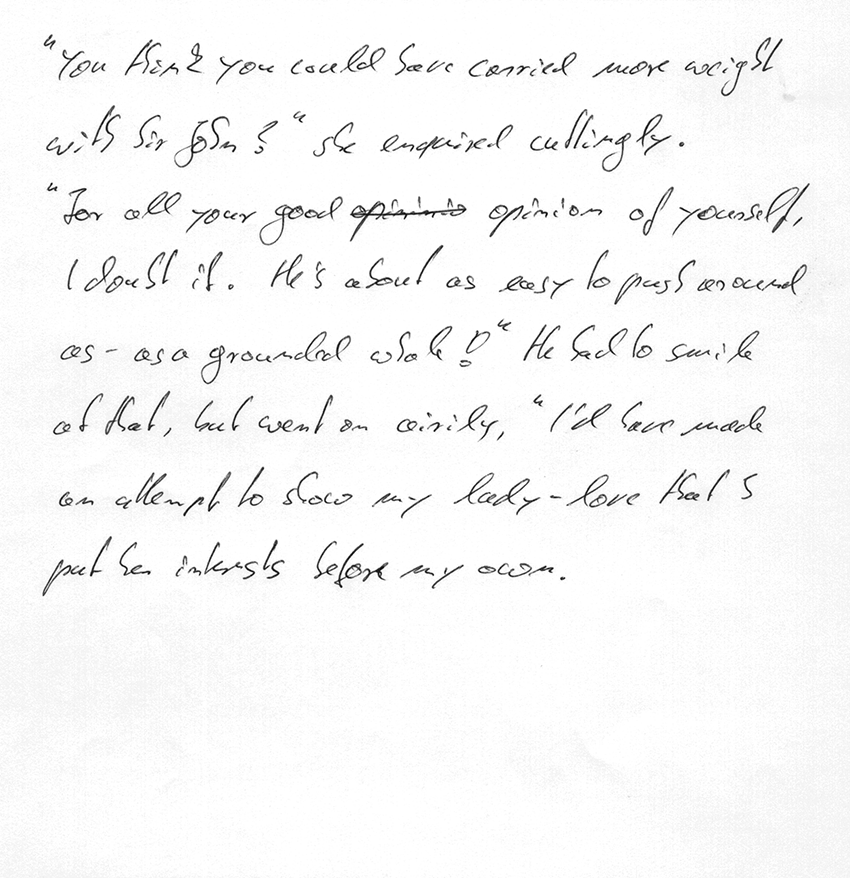 "You think you could have carried more weight
with Sir John?" she enquired cuttingly.
"For all your good opinion of yourself,
I doubt it. He's about as easy to push around
as - as a grounded whale!" He had to smile
at that, but went on airily, "I'd have made
an attempt to show my lady-love that I
put her interests before my own.